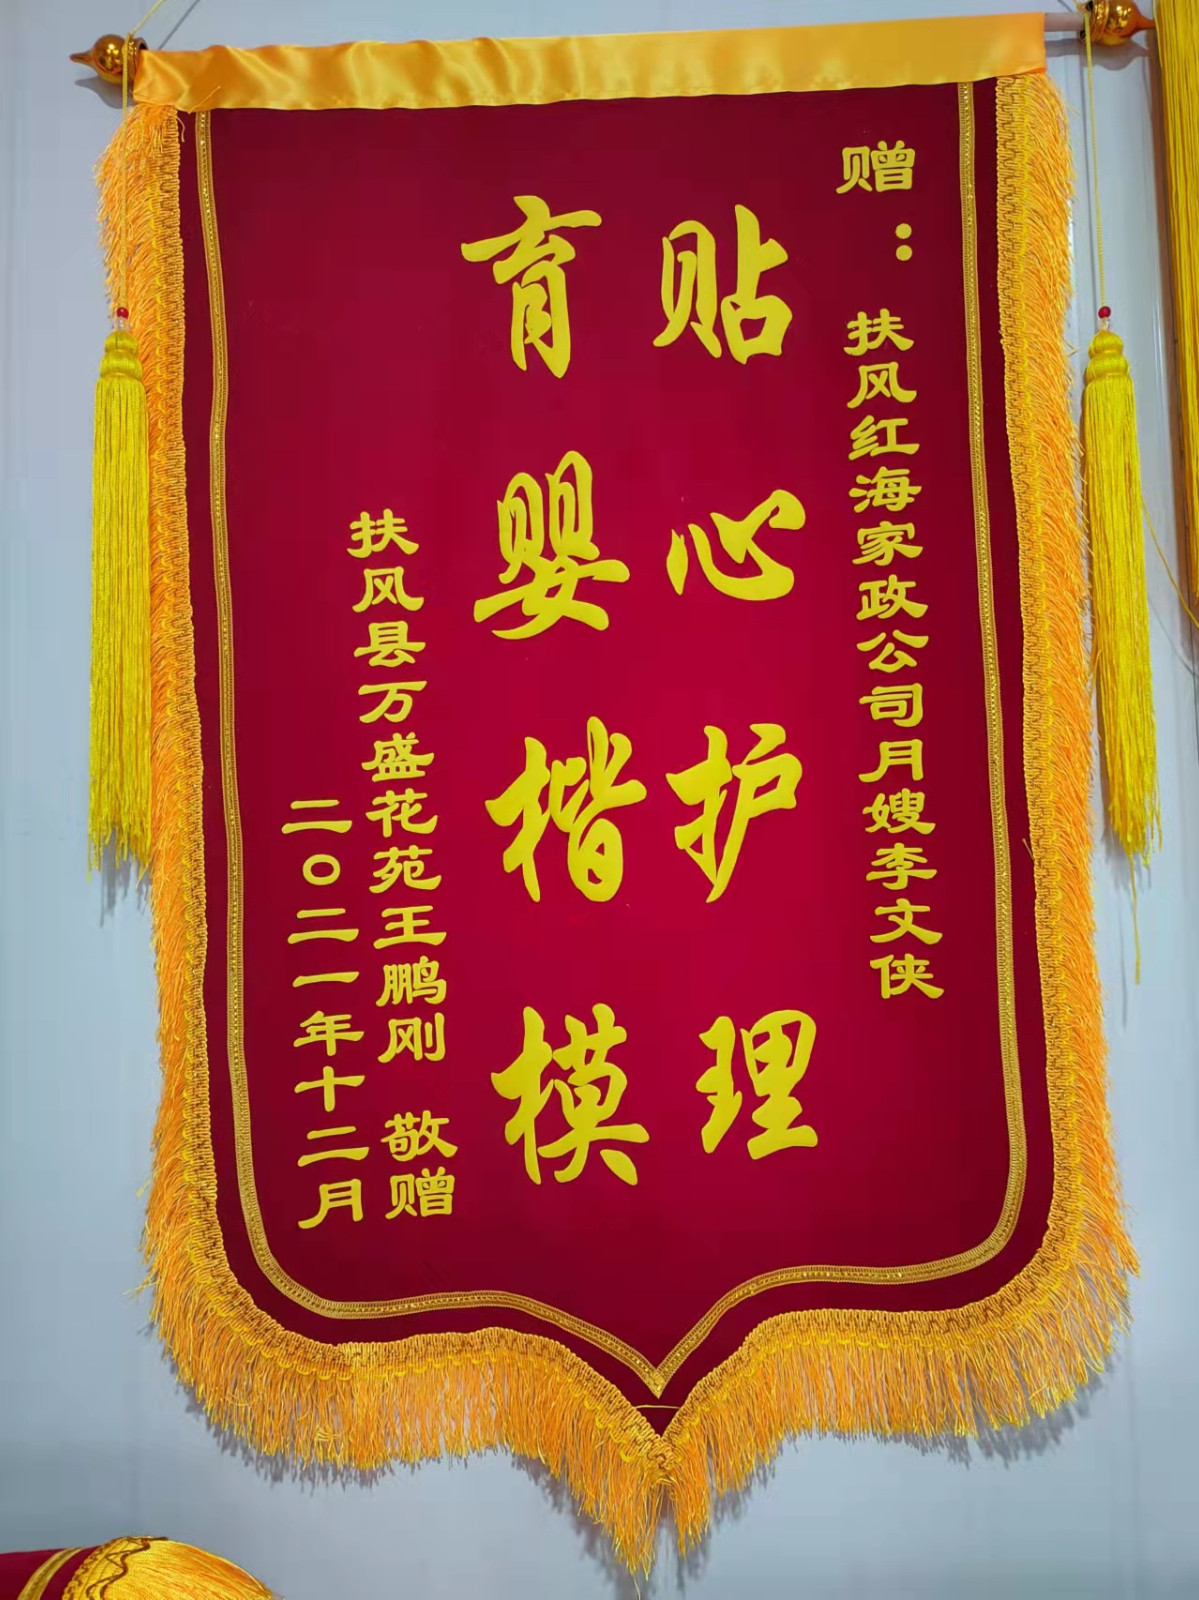 赠：扶风红海家政公司月嫂李文侠
贴心护理
育婴楷模
扶风县万盛花苑王鹏刚 敬赠
二〇二一年十二月